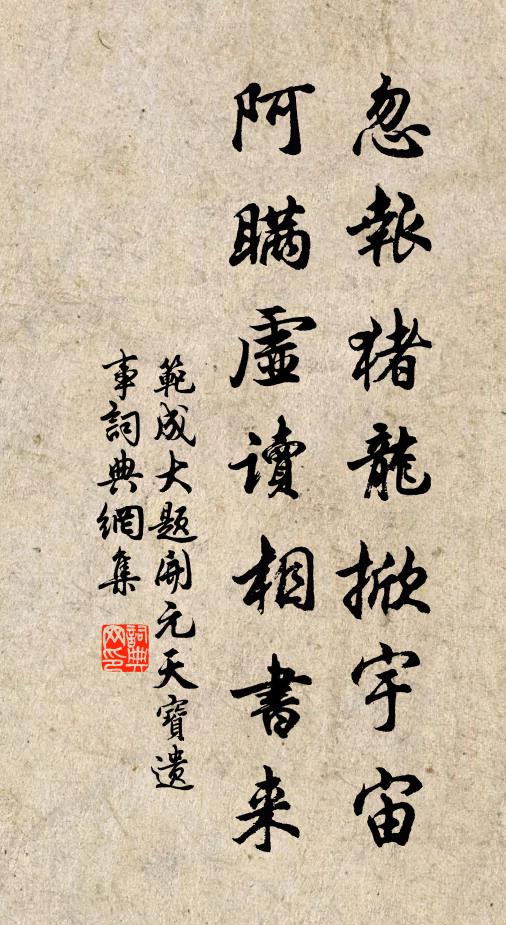 忽報猪龍掀宇宙
阿瞞虛讀相書来
範成大題開元天寶遺
事詞典網集
詞典
网印